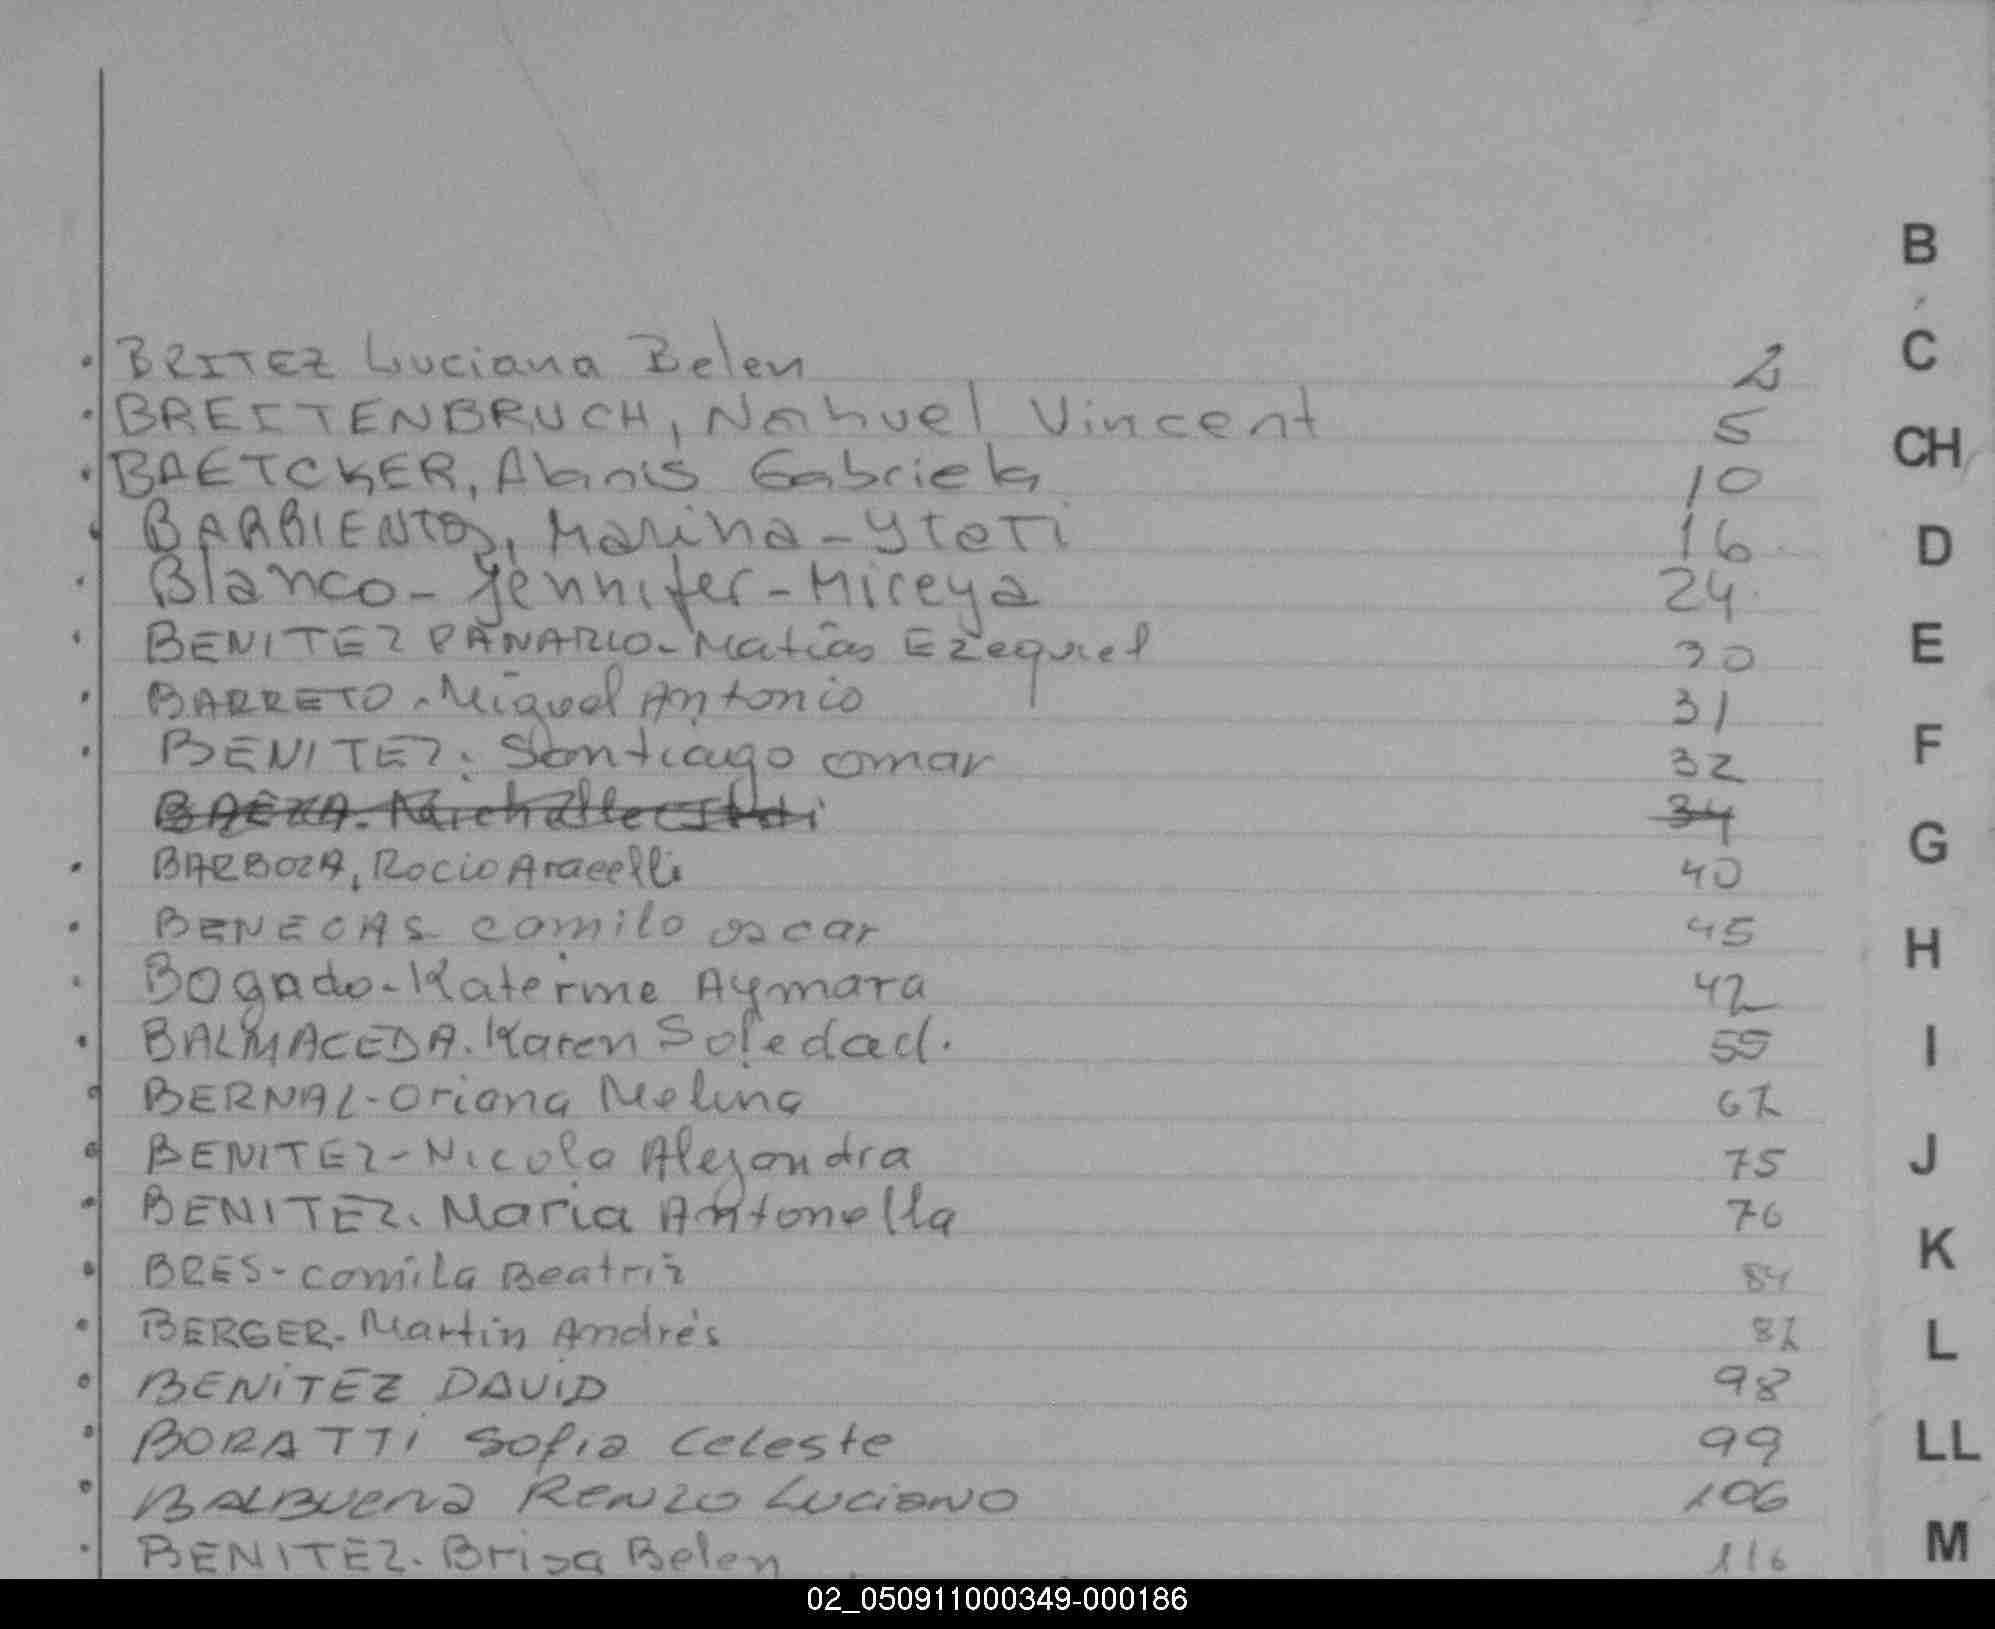 B
C
BRITEZ Luciana Belen 2
BREITENBRUCH, Nahuel Vincent 5
CH
BAETCKER, Alanis Gabriela 10
BARRIENTOS, Marina-Ytati 16
D
Blanco-Jennifer-Mireya 24
BENITEZ PANARIO-Matías Ezequiel 30
E
BARRETO-Miguel Antonio 31
BENITEZ. Santiago omar 32
F
34
G
BARBOZA, Rocio Aracelli 40
BENEGAS camilo oscar 45
H
Bogado-Katerine Aymara 42
BALMACEDA. Karen Soledad. 55
I
BERNAL-Oriana Melina 62
BENITEZ-Nicole Alejandra 75
J
BENITEZ. Maria Antonella 76
BRES-Camila Beatriz 84
K
BERGER. Martín Andrés 82
L
BENÍTEZ DAVID 98
BORATTI Sofia Celeste 99
LL
BALBUENA RENZO LUCIANO 106
BENITEZ. Brisa Belen 116
M
02_050911000349-000186